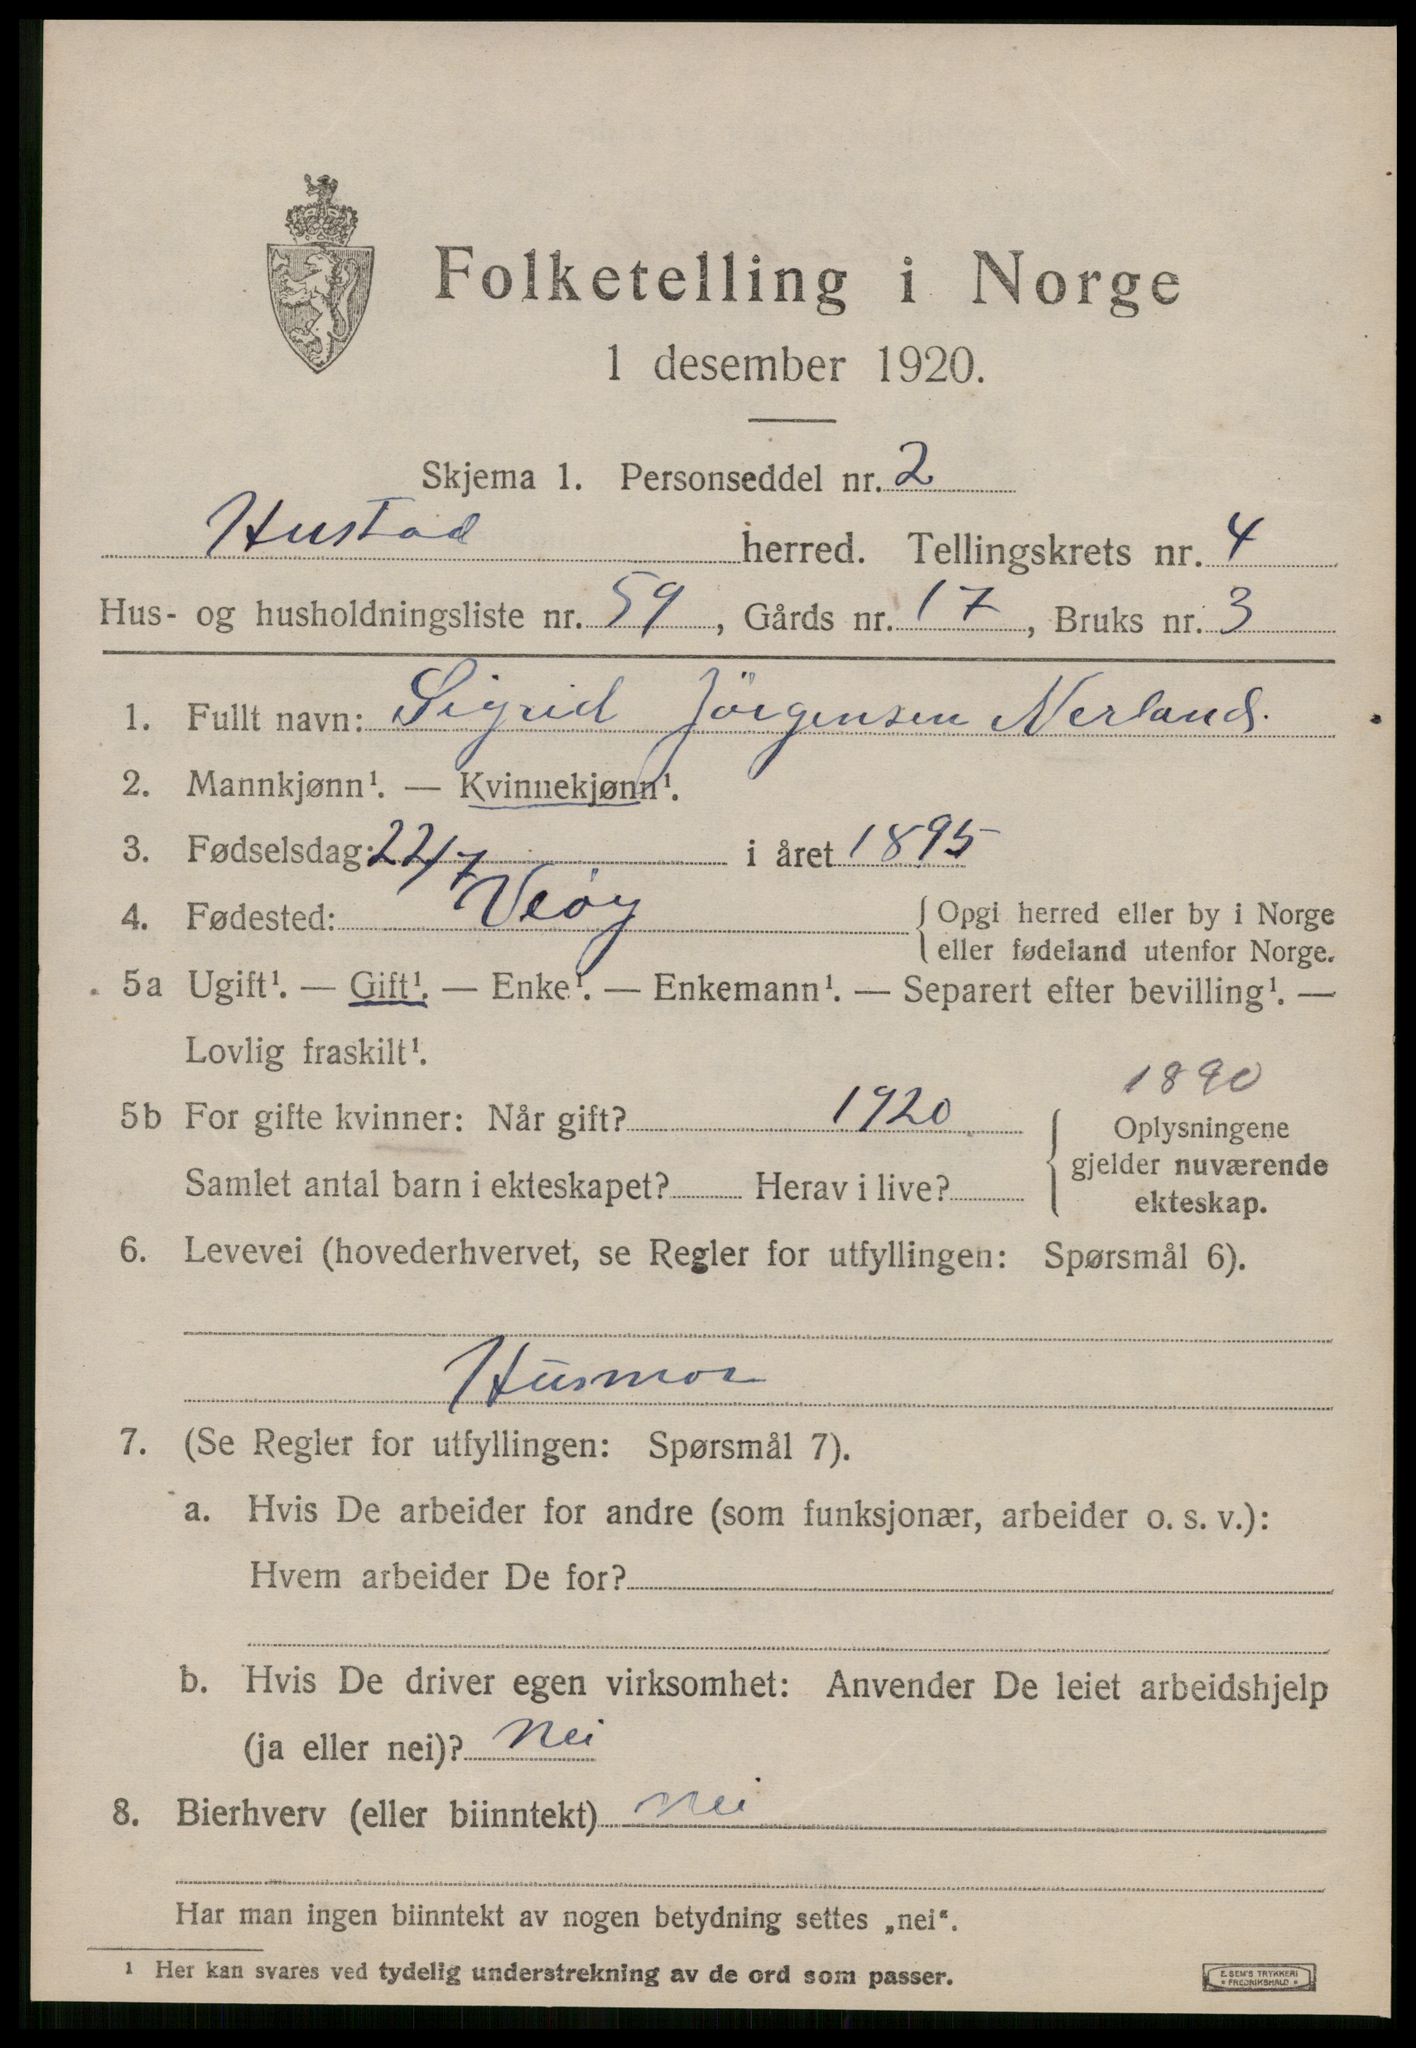 Folketelling i Norge
1 desember 1920.
Skjema 1. Personseddel nr. 2
Hustad herred. Tellingskrets nr. 4
Hus- og husholdningsliste nr. 59, Gårds nr. 17, Bruks nr. 3
1. Fullt navn: Sigrid Jörgensen Nerland.
2. Mannkjønn¹. — Kvinnekjønn¹.
3. Fødselsdag: 22/7 i året 1895
4. Fødested: Veöy
{ Opgi herred eller by i Norge
eller fødeland utenfor Norge.
5a Ugift¹. — Gift¹. — Enke¹. — Enkemann¹. — Separert efter bevilling¹. —
Lovlig fraskilt¹.
1890
5b For gifte kvinner: Når gift? 1920
Samlet antal barn i ekteskapet? Herav i live?
{ Oplysningene
gjelder nuværende
ekteskap.
6. Levevei (hovederhvervet, se Regler for utfyllingen: Spørsmål 6).
Husmor
7. (Se Regler for utfyllingen: Spørsmål 7).
a. Hvis De arbeider for andre (som funksjonær, arbeider o. s. v.):
Hvem arbeider De for?
b. Hvis De driver egen virksomhet: Anvender De leiet arbeidshjelp
(ja eller nei)? nei
8. Bierhverv (eller biinntekt) nei
Har man ingen biinntekt av nogen betydning settes „nei“.
¹ Her kan svares ved tydelig understrekning av de ord som passer.
E. SEM'S TRYKKERI
• FREDRIKSHALD •